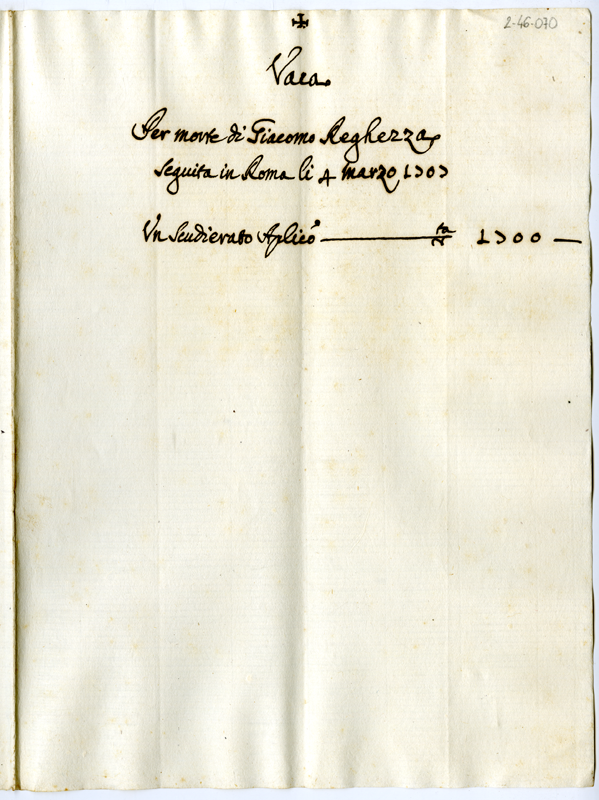 2-46-070
✠
Vaca
Per morte di Giacomo Reghezza
seguita in Roma li 4 marzo 1707
Un Scudierato Aplico 1700